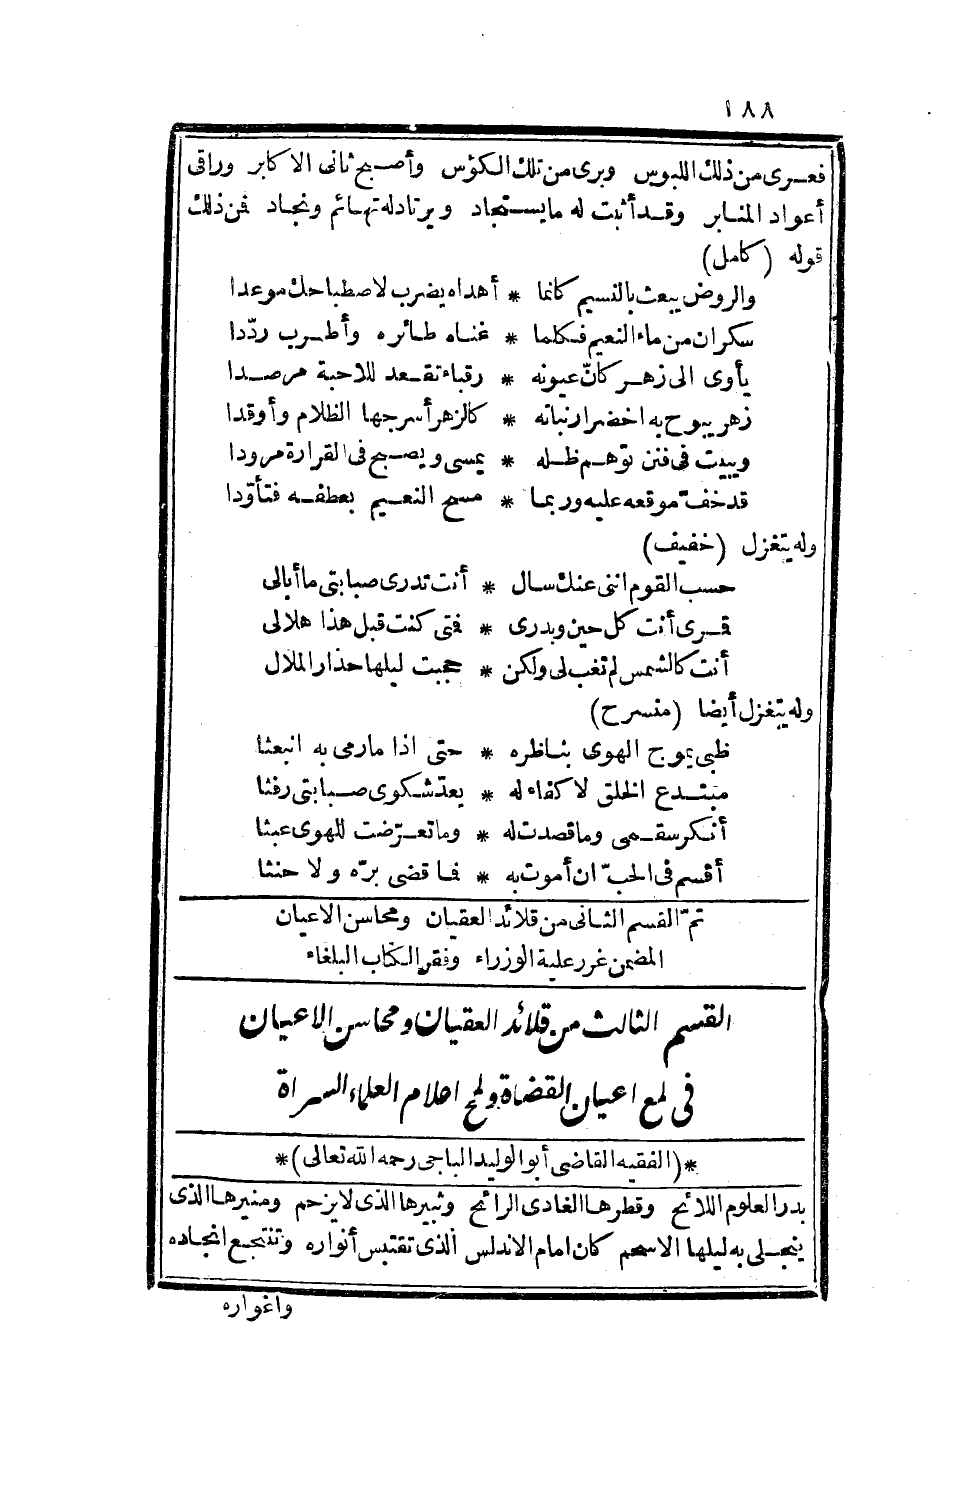 ١٨٨
فعرى من ذلك اللبوس وبرى من تلك الكؤس وأصبح ثانى الاكابر وراقى
أعواد المنابر وقد أثبت له ما يستجاد ويرتادله تهائم ونجاد فمن ذلك
قوله (كامل)
والروض يبعث بالنسيم كانما * أهداه يضرب لاصطباحك موعدا
سكران من ماء النعيم فكلما * غناه طائره وأطرب ردّدا
يأوى الى زهر كانّ عيونه * رقباء تقعد للاحبة مرصدا
زهر يبوح به اخضرار نباته * كالزهر أسرجها الظلام وأوقدا
ويبيت فى فنن توّهم ظله * يمسى ويصبح فى القرارة مرودا
قد خفّ موقعه عليه وربما * مسح النعيم بعطفه فتأوّدا
وله يتغزل (خفيف)
حسب القوم اننى عنك سال * أنت تدرى صبابتى ما أبالى
قمرى أنت كل حين وبدرى * فتى كنت قبل هذا هلالى
أنت كالشمس لم تغب لى ولكن * حجبت ليلها حذار الملال
وله يتغزل أيضا (منسرح)
ظبى يموج الهوى بناظره * حتى اذا مارمى به انبعثا
مبتدع الخلق لا كفاء له * يعدّ شكوى صبابتى رفثا
أنكر سقمى وما قصدت له * وما تعرّضت للهوى عبثا
أقسم فى الحبّ ان أموت به * فما قضى برّه ولا حنثا
تمّ القسم الثانى من قلائد العقيان ومحاسن الاعيان
المضمن غرر علية الوزراء وفقر الكتاب البلغاء
القسم الثالث من قلائد العقيان ومحاسن الاعيان
فى لمع اعيان القضاة ولمح اعلام العلماء السراة
*(الفقيه القاضى أبو الوليد الباجى رحمه الله تعالى)*
بدر العلوم اللائح وقطرها الغادى الرائح وثبيرها الذى لا يزحم ومنيرها الذى
ينجلى به ليلها الاسحم كان امام الاندلس الذى تقتبس أنواره وتنتجع انجاده
واغواره